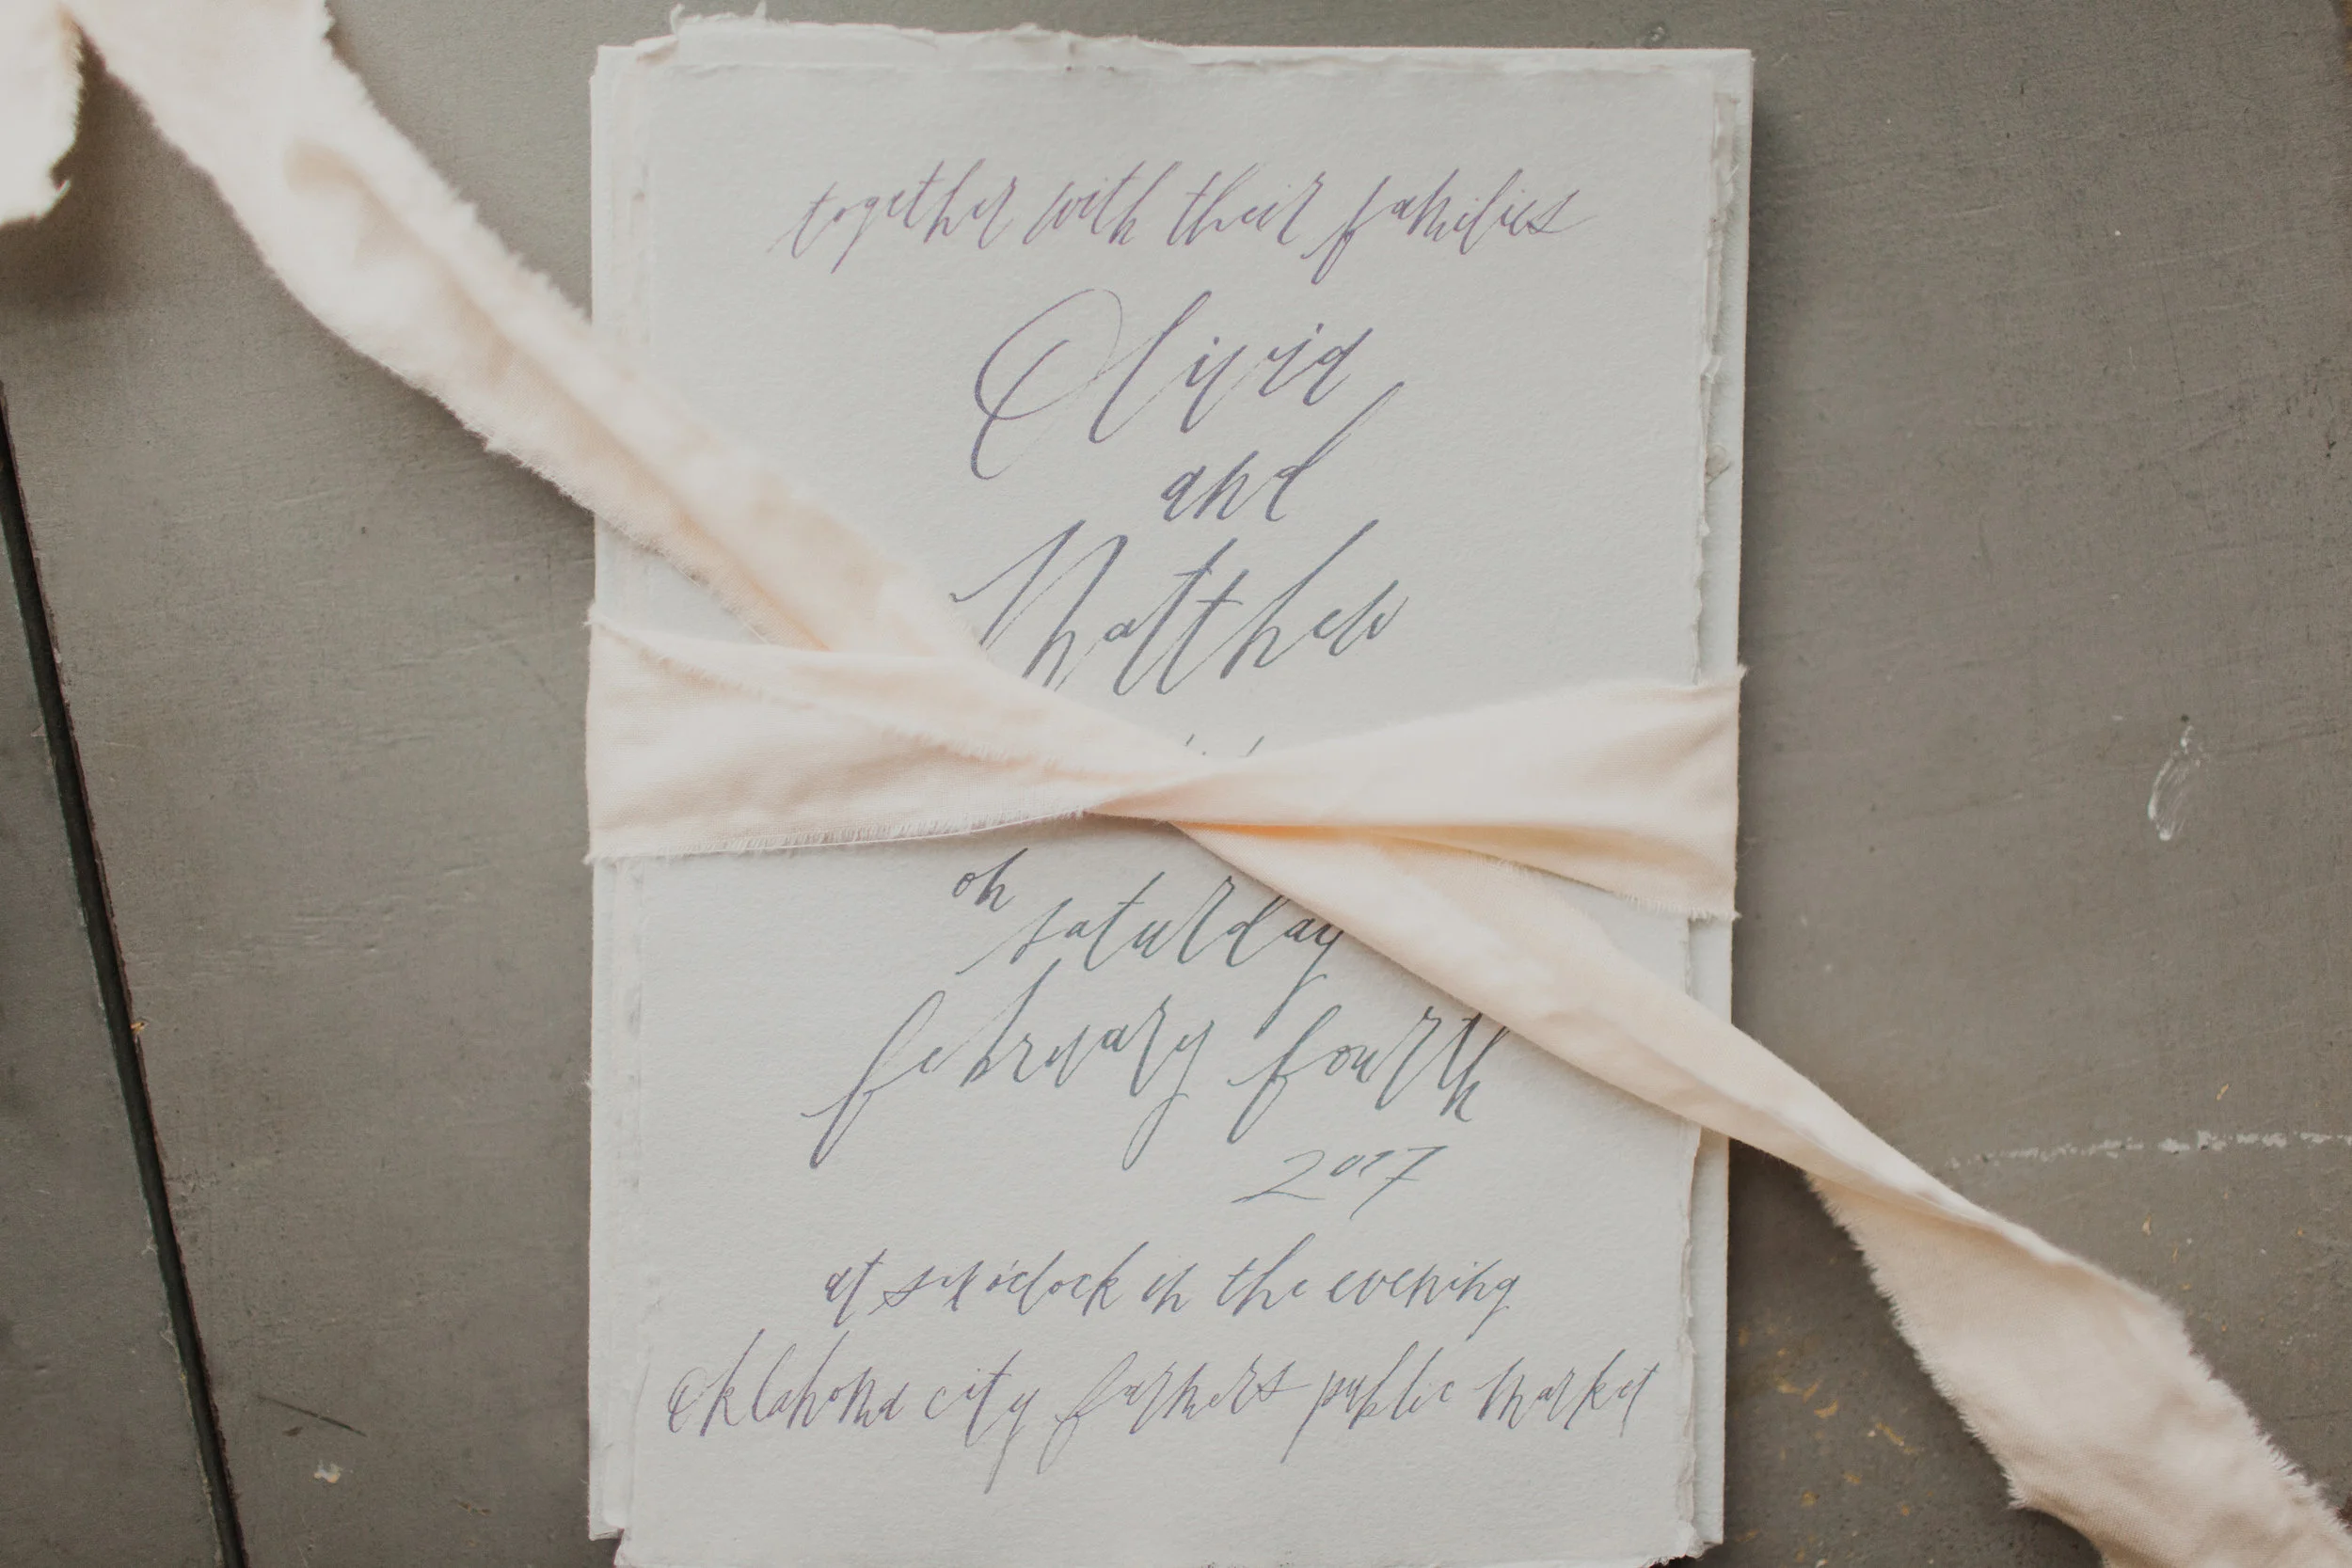 together with their families
Olivia
and
Matthew
on
saturday
february fourth
2017
at six o'clock in the evening
Oklahoma city farmers public market